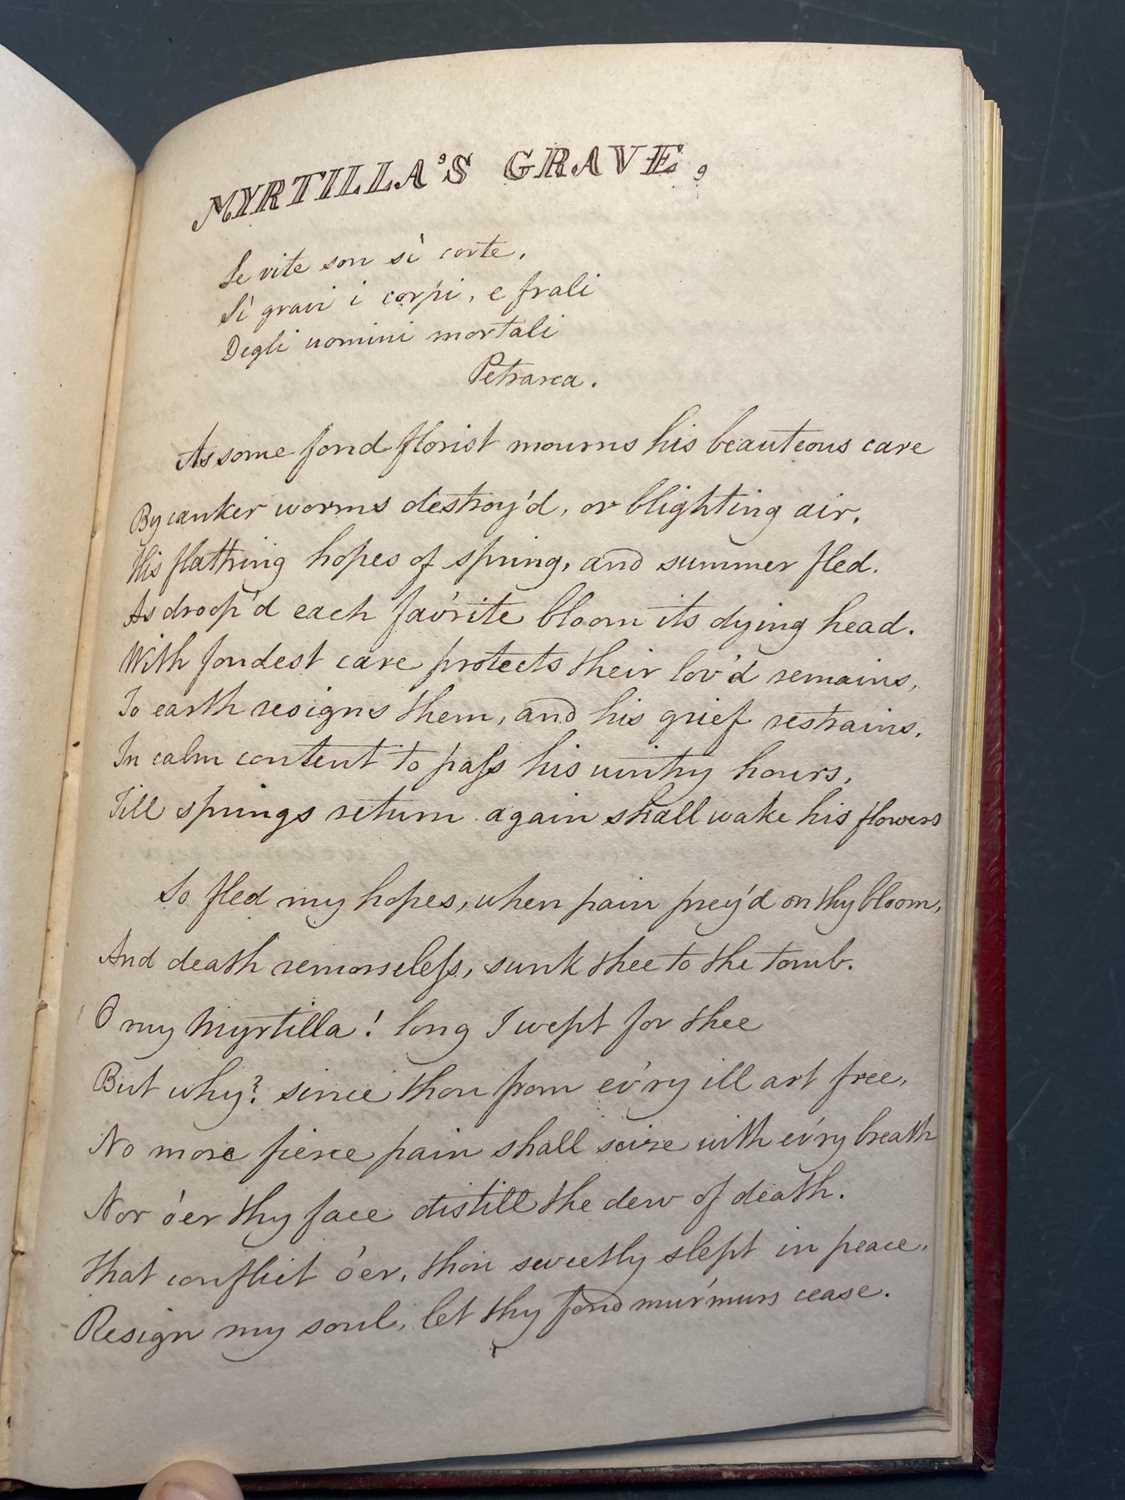 MYRTILLA'S GRAVE,
Se vite son sì corte,
Sì gravi i corpi, e frali
Degli uomini mortali
Petrarca.
As some fond florist mourns his beauteous care
By canker worms destroy'd, or blighting air,
His flatt'ring hopes of spring, and summer fled.
As droop'd each fav'rite bloom its dying head.
With fondest care protects their lov'd remains,
To earth resigns them, and his grief restrains,
In calm content to paſs his wintry hours,
Till springs return again shall wake his flowers
So fled my hopes, when pain prey'd on thy bloom,
And death remorseleſs, sunk thee to the tomb.
O my Myrtilla! long I wept for thee
But why? since thou from ev'ry ill art free,
No more fierce pain shall seize with ev'ry breath
Nor o'er thy face distill the dew of death.
That conflict o'er, thou sweetly slept in peace,
Resign my soul, let thy fond murmurs cease.